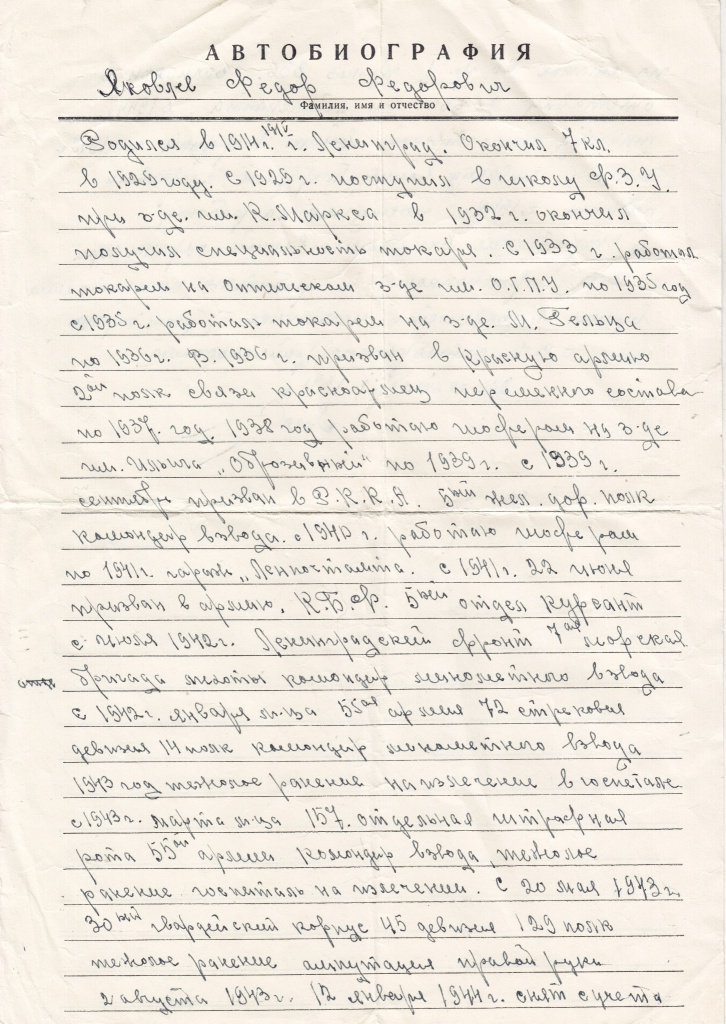 АВТОБИОГРАФИЯ
Яковлев Федор Федорович
Фамилия, имя и отчество
Родился в 1914г. г. Ленинград. Окончил 7 кл.
в 1929 году. С 1929 г. поступил в школу Ф.З.У.
при з-де. им. К. Маркса в 1932 г. окончил
получил специальность токаря. С 1933 г. работал
токарем на Оптическом з-де им. О.Г.П.У. по 1935 год
с 1935 г. работал токарем на з-де. М. Гельца
по 1936 г. В. 1936 г. призван в Красную армию
2ой полк связи красноармец переменного состава
по 1937. год. 1938 год работаю шофером на з-де
им. Ильича по 1939 г. с 1939 г.
сентябрь призван в Р.К.К.А. 5ый жел. дор. полк
командир взвода. с 1940 г. работаю шофером
по 1941 г. гараж „Ленпочтамта. с 1941 г. 22 июня
призван в армию. К.Б.Ф. 5ый отдел Курсант
с июля 1942 г. Ленинградский фронт 7ая морская
бригада пехоты командир минометного взвода
с 1942 г. января м-ца 55ая армия 72 стрековая
девизия 14 полк командир минометного взвода
1943 год тежолое ранение на излечение в госпетале
с 1943 г. марта м-ца 157. отдельная штрафная
рота 55ой армии командир взвода, тежолое
ранение госпиталь на излечении. С 20 мая 1943 г.
30ый гвардейский корпус 45 девизия 129 полк
тежолое ранение ампутация правой руки
2 августа 1943 г. 12 января 1944 г. снят с учета